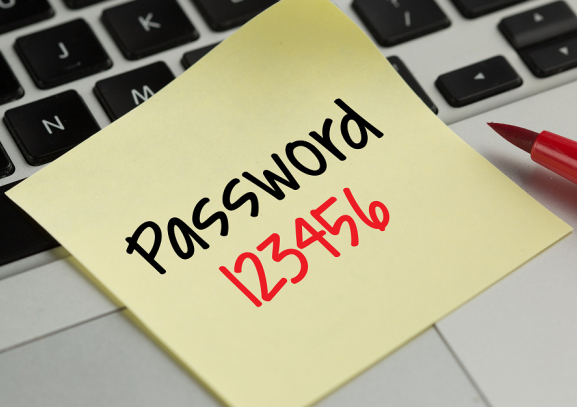 J K
N M
Password
123456